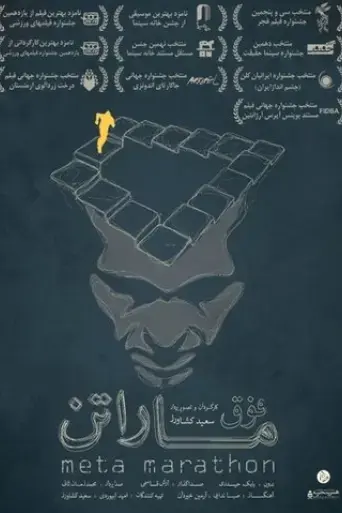 منتخب سی و پنجمین
جشنواره فیلم فجر
نامزد بهترین موسیقی
از جشن خانه سینما
نامزد بهترین فیلم از یازدهمین
جشنواره فیلمهای ورزشی
منتخب دهمین
جشنواره سینما حقیقت
منتخب نهمین جشن
مستقل مستند خانه سینما
نامزد بهترین کارگردانی از
یازدهمین جشنواره فیلمهای ورزشی
منتخب جشنواره ایرانیان کلن
(چشم انداز ایران)
منتخب جشنواره جهانی
جاکارتای اندونزی
منتخب جشنواره جهانی فیلم
درخت زردآلوی ارمنستان
منتخب جشنواره جهانی فیلم
مستند بوینس آیرس آرژانتین
FIDBA
فوق
ماراتن
کارگردان و تصویربردار
سعید کشاورز
meta marathon